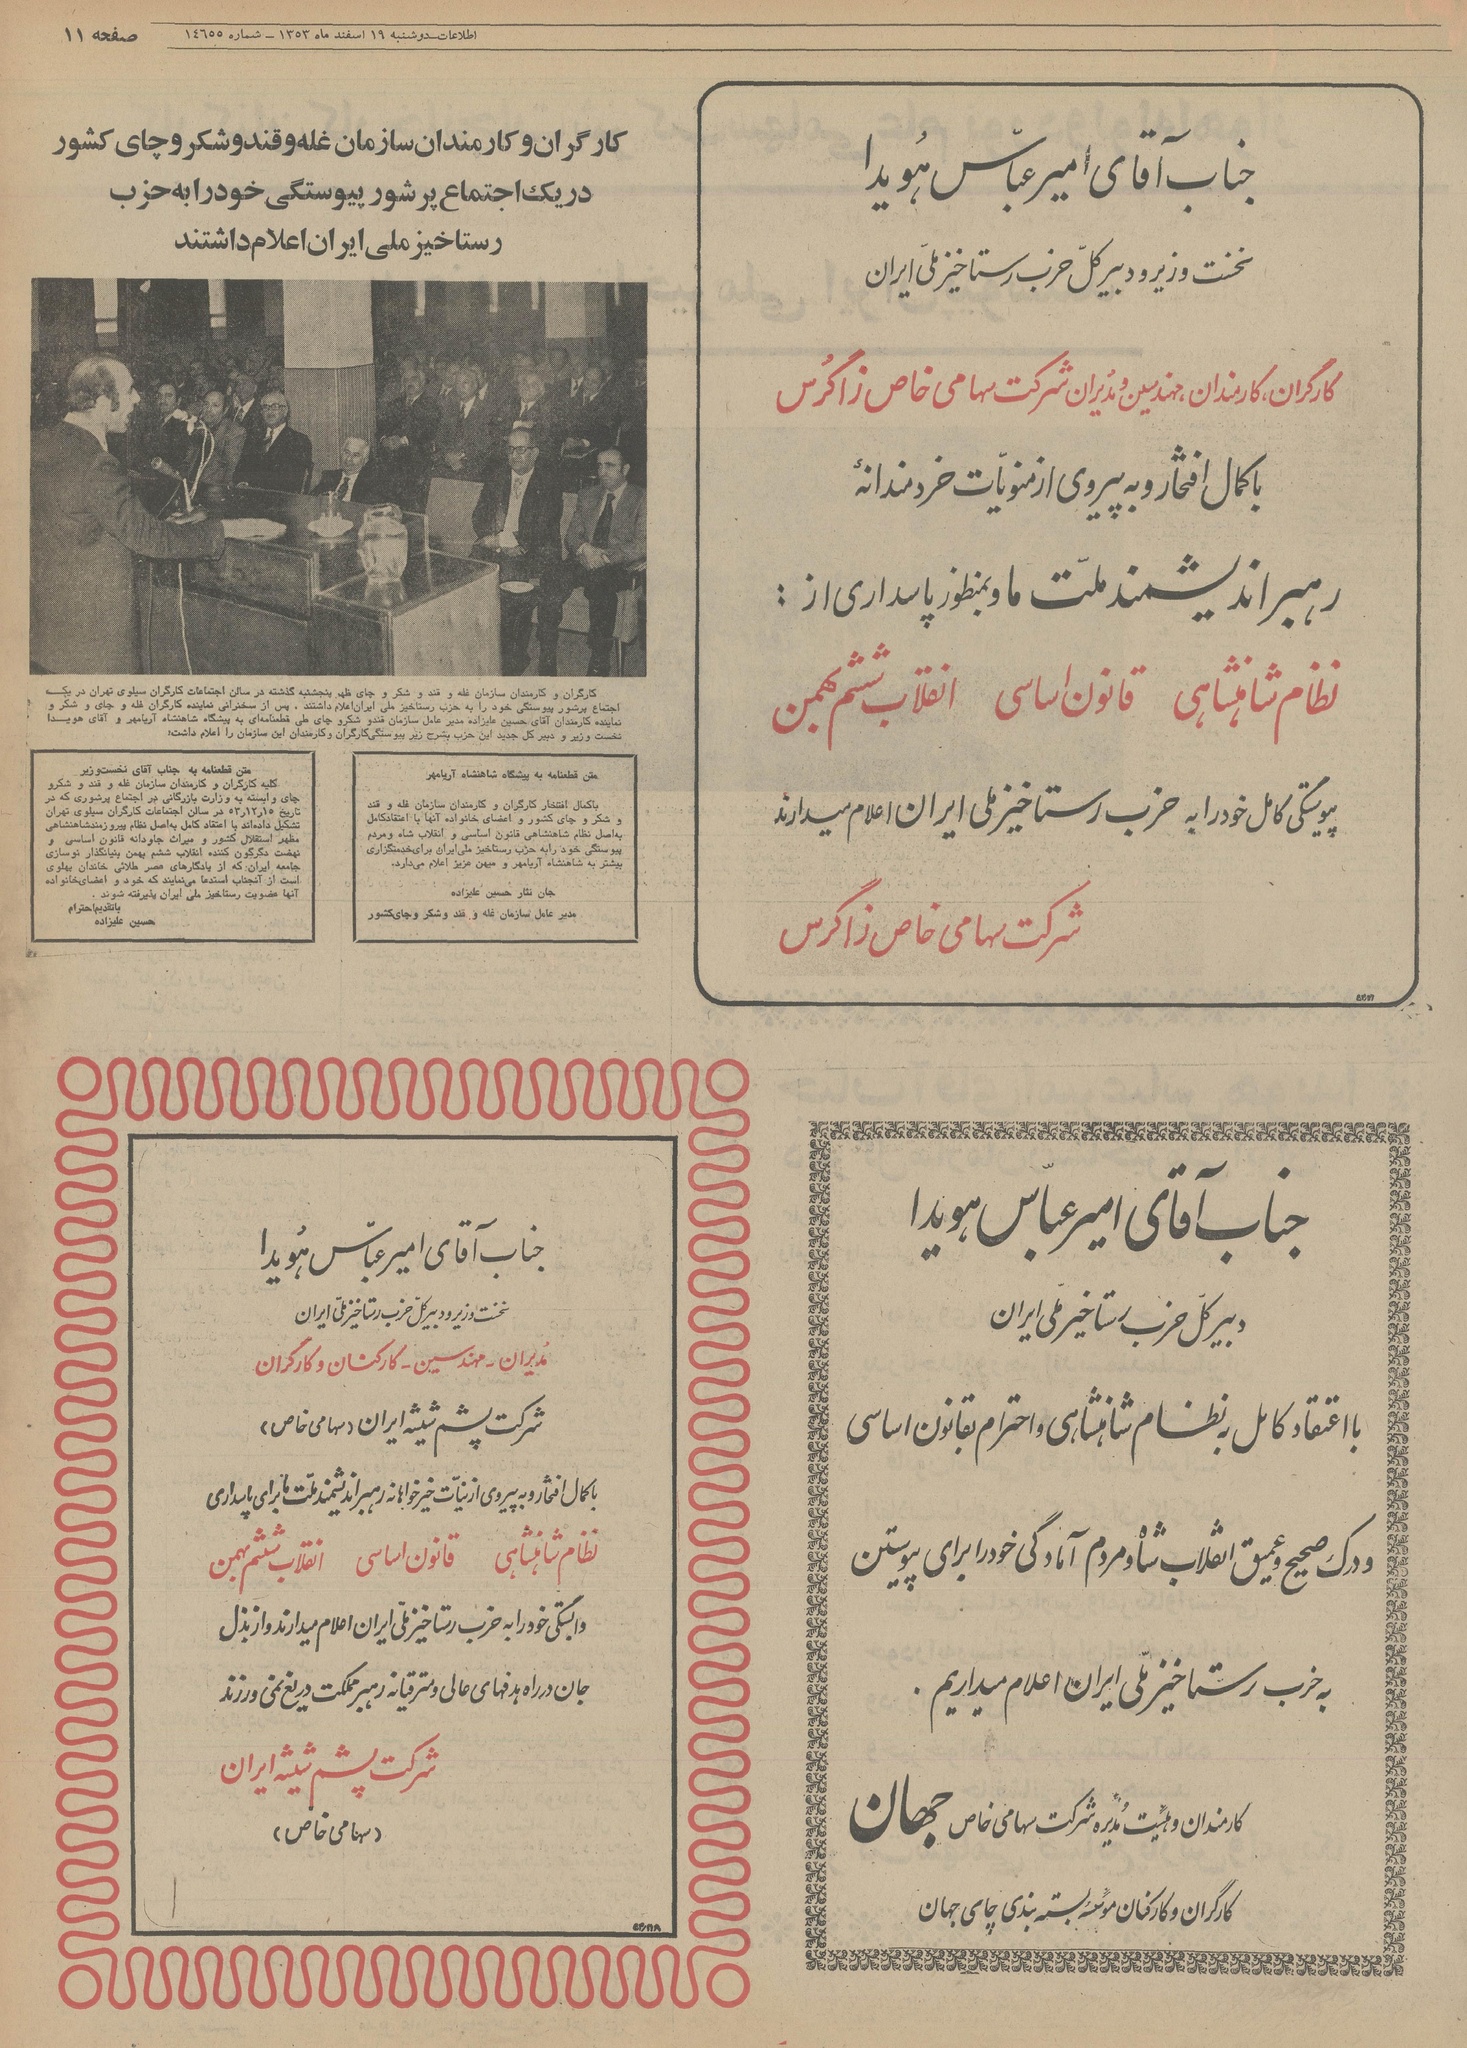 صفحه ۱۱
اطلاعات-دوشنبه ۱۹ اسفند ماه ۱۳۵۳ - شماره ۱۴۶۵۵
جناب آقای امیر عبّاس هُویدا
نخست وزیر و دبیر کلّ حزب رستاخیز ملّی ایران
کارگران، کارمندان، مهندسین و مدیران شرکت سهامی خاص زاگرُس
با کمال افتخار و به پیروی از منویّات خردمندانهٔ
رهبر اندیشمند ملّت ما و بمنظور پاسداری از :
نظام شاهنشاهی قانون اساسی انقلاب ششم بهمن
پیوستگی کامل خود را به حزب رستاخیز ملی ایران اعلام میدارند
شرکت سهامی خاص زاگرس
کارگران و کارمندان سازمان غله و قند و شکر و چای کشور
در یک اجتماع پرشور پیوستگی خود را به حزب
رستاخیز ملی ایران اعلام داشتند
کارگران و کارمندان سازمان غله و قند و شکر و چای ظهر پنجشنبه گذشته در سالن اجتماعات کارگران سیلوی تهران در یک
اجتماع پرشور پیوستگی خود را به حزب رستاخیز ملی ایران اعلام داشتند . پس از سخنرانی نماینده کارگران غله و چای و شکر و
نماینده کارمندان آقای حسین علیزاده مدیر عامل سازمان قندو شکرو چای طی قطعنامه‌ای به پیشگاه شاهنشاه آریامهر و آقای هویدا
نخست وزیر و دبیر کل جدید این حزب بشرح زیر پیوستگی کارگران و کارمندان این سازمان را اعلام داشت:
متن قطعنامه به پیشگاه شاهنشاه آریامهر
باکمال افتخار کارگران و کارمندان سازمان غله و قند
و شکر و چای کشور و اعضای خانواده آنها با اعتقادکامل
به‌اصل نظام شاهنشاهی قانون اساسی و انقلاب شاه و مردم
پیوستگی خود را به حزب رستاخیز ملی‌ایران برای‌خدمتگزاری
بیشتر به شاهنشاه آریامهر و میهن عزیز اعلام می‌دارد.
جان نثار حسین علیزاده
مدیر عامل سازمان غله و قند وشکر و چای‌کشور
متن قطعنامه به جناب آقای نخست‌وزیر
کلیه کارگران و کارمندان سازمان غله و قند و شکرو
چای وابسته به وزارت بازرگانی در اجتماع پرشوری که در
تاریخ ۵۳ر۱۲ر۱۵ در سالن اجتماعات کارگران سیلوی تهران
تشکیل داده‌اند با اعتقاد کامل به‌اصل نظام پیروزمندشاهنشاهی
مظهر استقلال کشور و میراث جاودانه قانون اساسی و
نهضت دگرگون کننده انقلاب ششم بهمن بنیانگذار نوسازی
جامعه ایران که از یادگارهای عصر طلائی خاندان پهلوی
است از آنجناب استدعا می‌نمایند که خود و اعضای‌خانواده
آنها عضویت رستاخیز ملی ایران پذیرفته شوند .
باتقدیم‌احترام
حسین علیزاده
جناب آقای امیر عبّاس هویدا
دبیر کلّ حزب رستاخیز ملّی ایران
با اعتقاد کامل به نظام شاهنشاهی و احترام بقانون اساسی
و درک صحیح و عمیق انقلاب شاه و مردم آمادگی خود را برای پیوستن
به حزب رستاخیز ملّی ایران اعلام میداریم .
کارمندان و هیئت مُدیره شرکت سهامی خاص جهان
کارگران و کارکنان موسسه بسته بندی چای جهان
جناب آقای امیر عبّاس هُویدا
نخست وزیر و دبیر کلّ حزب رستاخیز ملّی ایران
مُدیران - مهندسین - کارکنان و کارگران
شرکت پشم شیشه ایران (سهامی خاص)
با کمال افتخار و به پیروی از نیّات خیرخواهانه رهبر اندیشمند ملّت ما برای پاسداری
نظام شاهنشاهی قانون اساسی انقلاب ششم بهمن
وابستگی خود را به حزب رستاخیز ملّی ایران اعلام میدارند و از بذل
جان در راه هدفهای عالی و مترقیانه رهبر مملکت دریغ نمی ورزند
شرکت پشم شیشه ایران
(سهامی خاص)